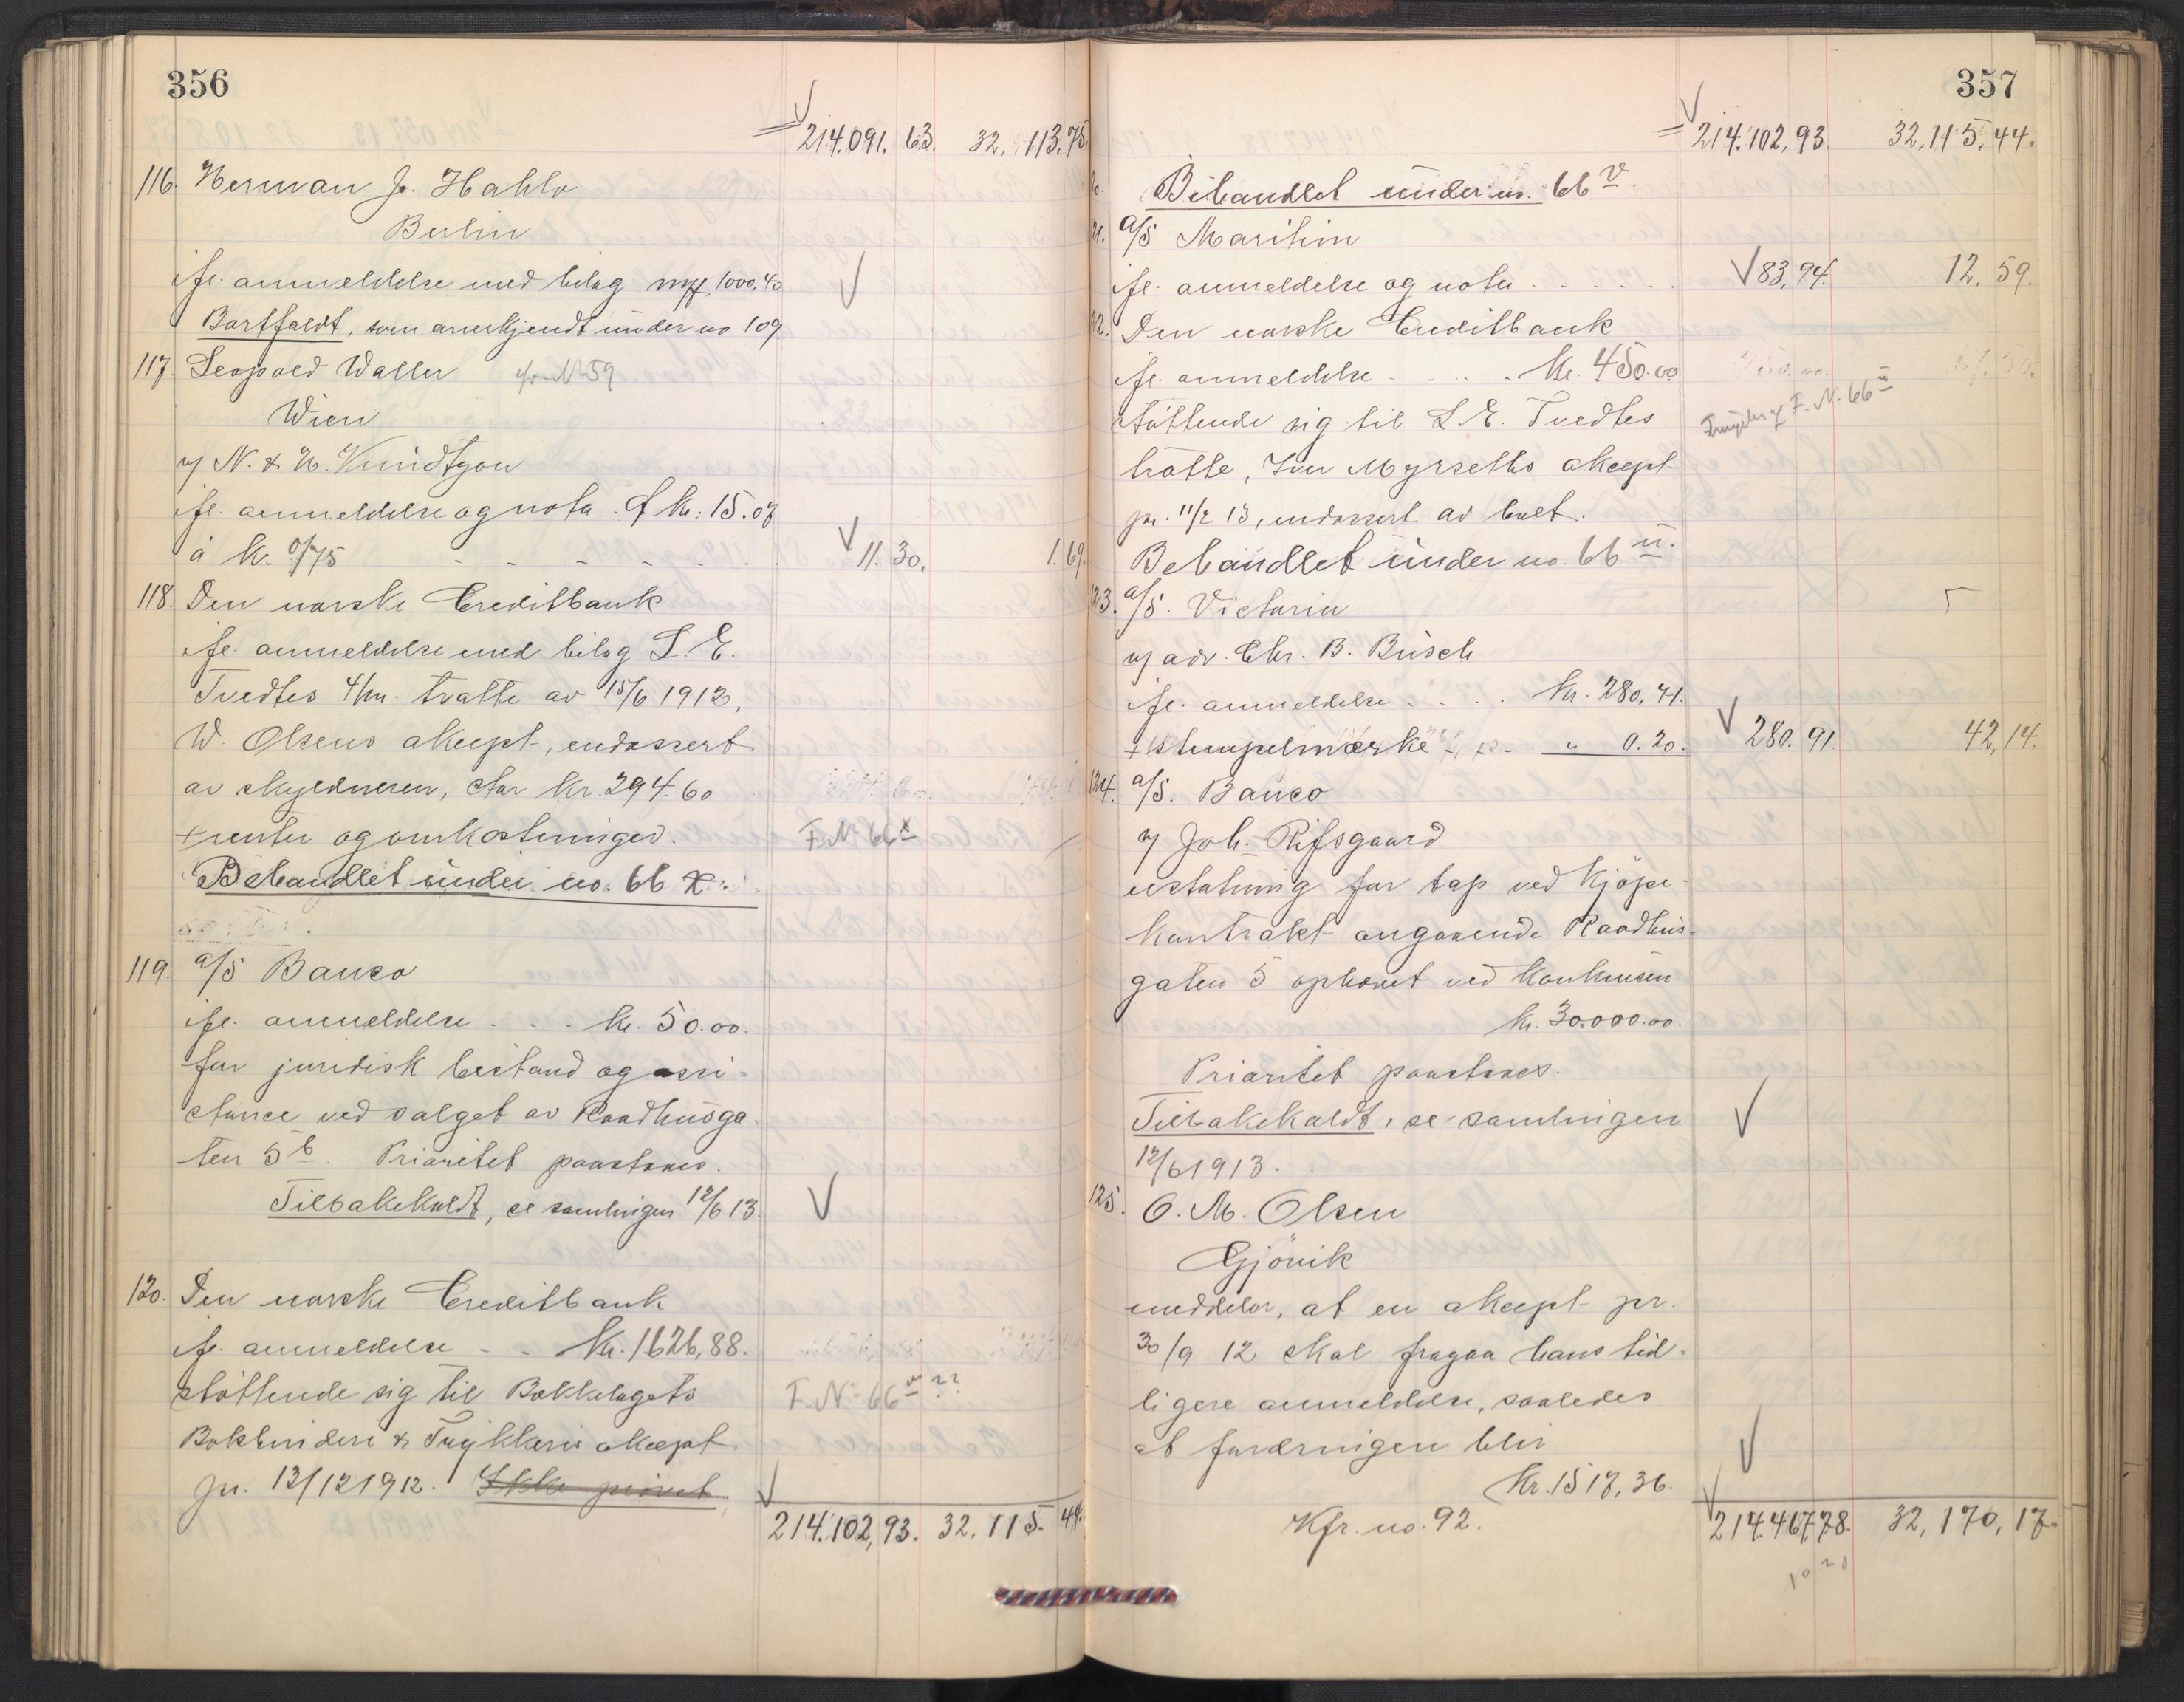 356
214.091.63. 32.113.75.
116. Herman J. Hahlo
Berlin
ifl. anmeldelse med bilag mk 1000,40
Bortfaldt, som anerkjendt under no 109.
117. Leopold Waller cfr. No 59
Wien
v/ N. & H.
ifl. anmeldelse og nota ¢ kr. 15.07
à kr. 0/75 - - - - - 11.30. 1.69.
118. Den norske Creditbank
ifl. anmeldelse med bilag L. E.
Tvedtes 4/m. tratte av 15/6 1912,
W. Olsens aksept, endossert
av skyldneren, stor kr. 294.60
+ renter og omkostninger. F. No 66 x
Behandlet under no. 66 x.
119. a/s Banco
ifl. anmeldelse . . . kr. 50.00.
for juridisk bistand og assi-
stance ved salget av Raadhusga-
ten 5 b. Prioritet paastaaes.
Tilbakekaldt, se samlingen 12/6 13.
120. Den norske Creditbank
ifl. anmeldelse - . kr. 1626,88.
støttende sig til Bokklagets
F. No 66 v ??
Bokbinderi & Trykkeris aksept
pr. 13/12 1912. Ikke prøvet.
214.102,93. 32.115.44.
357
214.102,93. 32,115,44.
Behandlet under no. 66 v.
21. a/s Maritim
ifl. anmeldelse og nota . . . . . . 83,94. 12.59.
22. Den norske Creditbank
ifl. anmeldelse - . . . kr. 450.00
støttende sig til L. E. Tvedtes
F. No. 66 u
tratte, Iver Myrseths aksept
pr. 11/2 13, endossert av boet.
Behandlet under no. 66 u.
123. a/s. Victoria
v/ adv. Chr. B. Busch
ifl. anmeldelse . . . . kr. 280,71.
+ stempelmærke - . . " 0.20. 280.91. 42,14.
124. a/s. Banco
v/ Joh. Rifsgaard
erstatning for tap ved kjøpe-
kontrakt angaaende Raadhus-
gaten 5 ophævet ved konkursen
kr. 30.000.00.
Prioritet paastaaes.
Tilbakekaldt, se samlingen
12/6 1913.
125. O. M. Olsen
Gjövik
meddeler, at en aksept pr.
30/9 12 skal fragaa hans tid-
ligere anmeldelse, saaledes
at fordringen blir
Kr. 1517,36.
Kfr. no. 92.
214.467,78. 32,170,17.